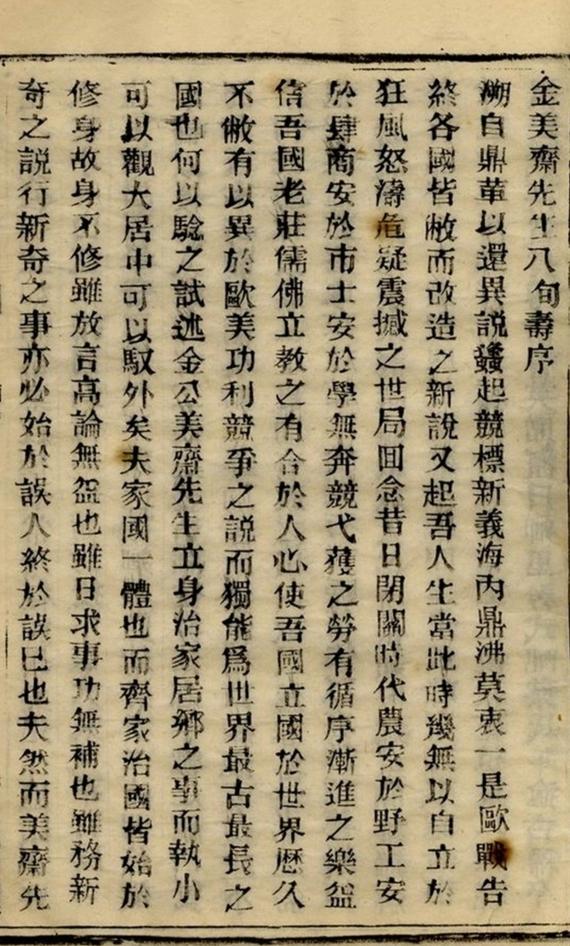 金美齋先生八旬壽序
溯自鼎革以還異說蠭起競標新義海內鼎沸莫衷一是歐戰告
終各國皆敝而改造之新說又起吾人生當此時幾無以自立於
狂風怒濤危疑震撼之世局回念昔日閉關時代農安於野工安
於肆商安於市士安於學無奔競弋獲之勞有循序漸進之樂益
信吾國老莊儒佛立教之有合於人心使吾國立國於世界歷久
不敝有以異於歐美功利競爭之說而獨能爲世界最古最長之
國也何以驗之試述金公美齋先生立身治家居鄉之事而執小
可以觀大居中可以馭外矣夫家國一體也而齊家治國皆始於
修身故身不修雖放言高論無益也雖日求事功無補也雖務新
奇之說行新奇之事亦必始於誤人終於誤已也夫然而美齋先